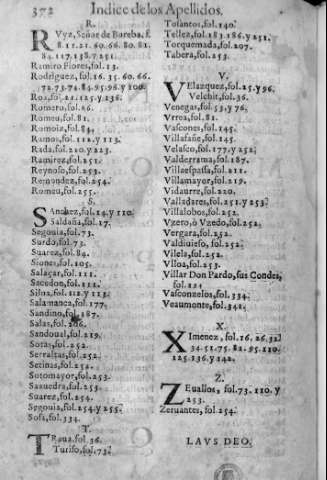 372 Indice de los Apellidos.
R.
Ruyz, Señor de Bureba, f.
8. 11. 21. 60. 66. 80. 81.
84. 117. 138. y 251.
Ramiro Flores, fol. 13.
Rodriguez, fol. 16. 35. 60. 66.
72. 73. 74. 84. 95. 96. y 100.
Roa, fol. 21. 125. y 136.
Romero, fol. 46.
Romeu, fol. 81.
Ramoiz, fol. 84.
Ramos, fol. 112. y 113.
Rada, fol. 210. y 223.
Ramirez, fol. 251.
Reynoso, fol. 253.
Remondez, fol. 254.
Romeu, fol. 255.
S.
Sanchez, fol. 14. y 110.
Saldaña, fol. 17.
Segouia, fol. 73.
Surdo, fol. 73.
Suarez, fol. 84.
Siones, fol. 105.
Salaçar, fol. 111.
Sacedon, fol. 111.
Silua, fol. 112. y 113.
Salamanca, fol. 177.
Sandino, fol. 187.
Salas, fol. 206.
Sandoual, fol. 219.
Sotas, fol. 252.
Serraltas, fol. 252.
Setinas, fol. 252.
Sotomayor, fol. 253.
Saauedra, fol. 253.
Suarez, fol. 254.
Segouia, fol. 254. y 255.
Sosa, fol. 334.
T.
Traua, fol. 36.
Turiso, fol. 73.
Tosantos, fol. 140.
Tellez, fol. 183. 186. y 251.
Torquemada, fol. 207.
Tabera, fol. 253.
V.
Velazquez, fol. 25. y 96.
Velchit, fol. 36.
Venegas, fol. 53. y 76.
Vrrea, fol. 81.
Vascones, fol. 145.
Villafañe, fol. 145.
Velasco, fol. 177. y 252.
Valderrama, fol. 187.
Villaespassa, fol. 211.
Villamayor, fol. 219.
Vidaurre, fol. 220.
Valladares, fol. 251. y 253.
Villalobos, fol. 252.
Vzero, ò Vzedo, fol. 252.
Vergara, fol. 252.
Valdiuieso, fol. 252.
Vilela, fol. 252.
Vlloa, fol. 253.
Villar Don Pardo, sus Condes,
fol. 221.
Vasconzelos, fol. 334.
Veaumonte, fol. 341.
X.
Ximenez, fol. 16. 26. 32.
34. 51. 75. 82. 95. 120.
125. 136. y 142.
Z.
Zeuallos, fol. 73. 110. y
253.
Zeruantes, fol. 254.
LAVS DEO.